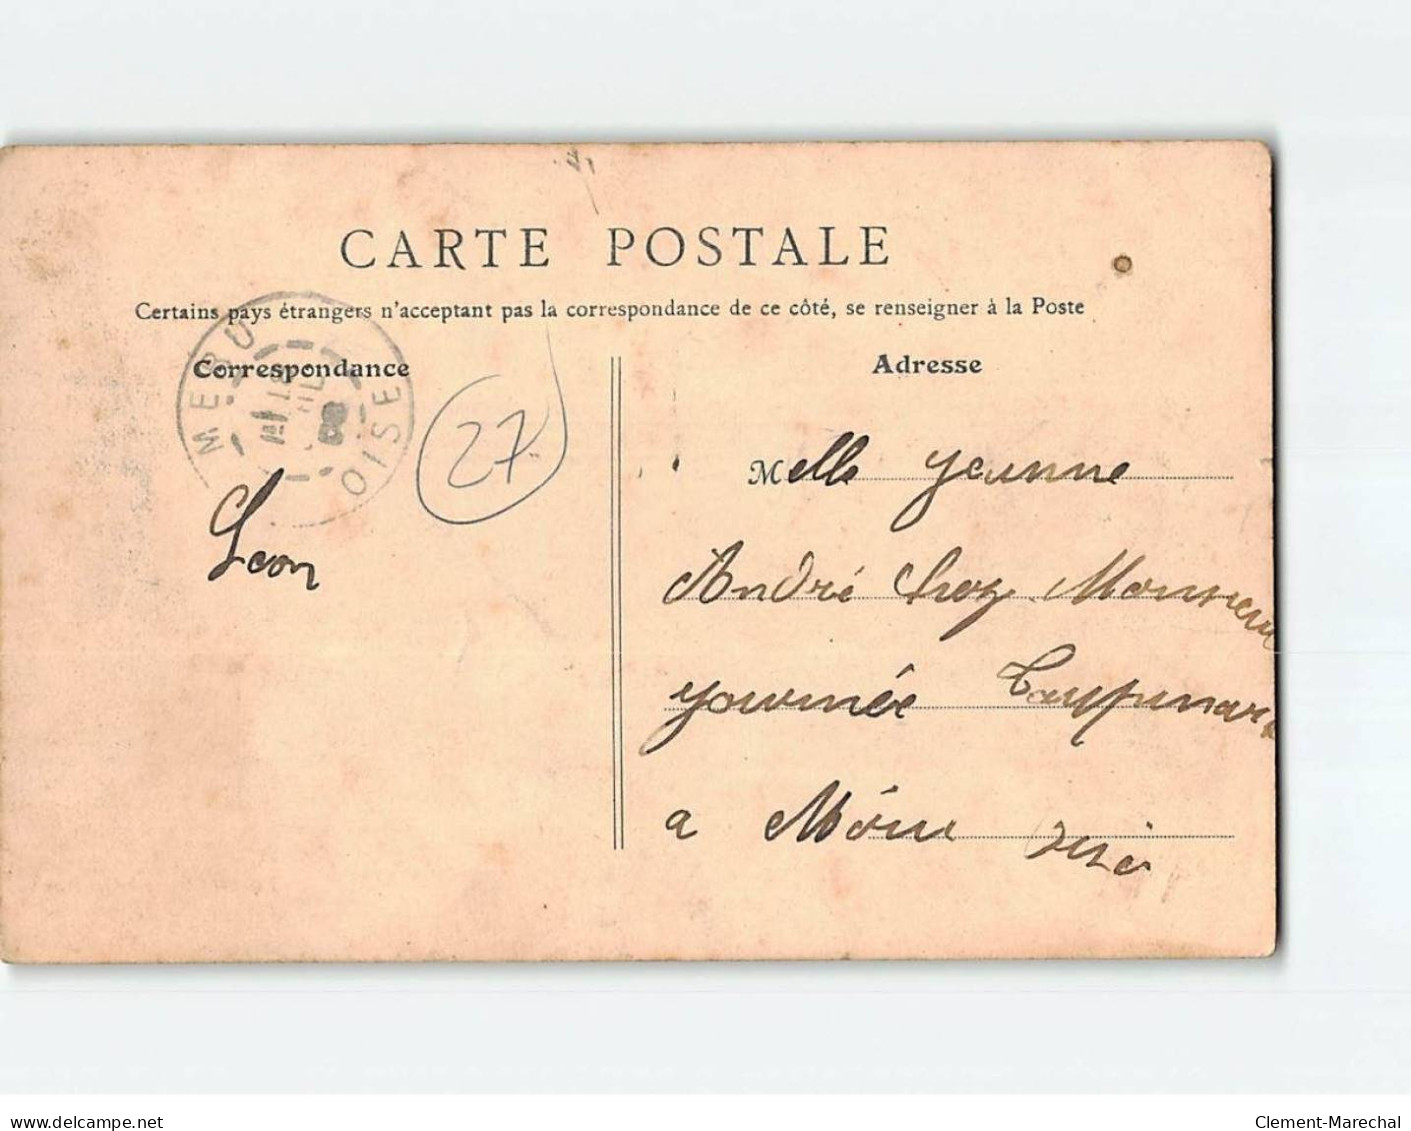 CARTE POSTALE
Certains pays étrangers n'acceptent pas la correspondance de ce côté, se renseigner à la Poste
Correspondance
Adresse
MERU OISE
27
Léon
Melle Jeanne
André Chez Monsieur
a Méru Oise
delcampe.net
Clement-Marechal